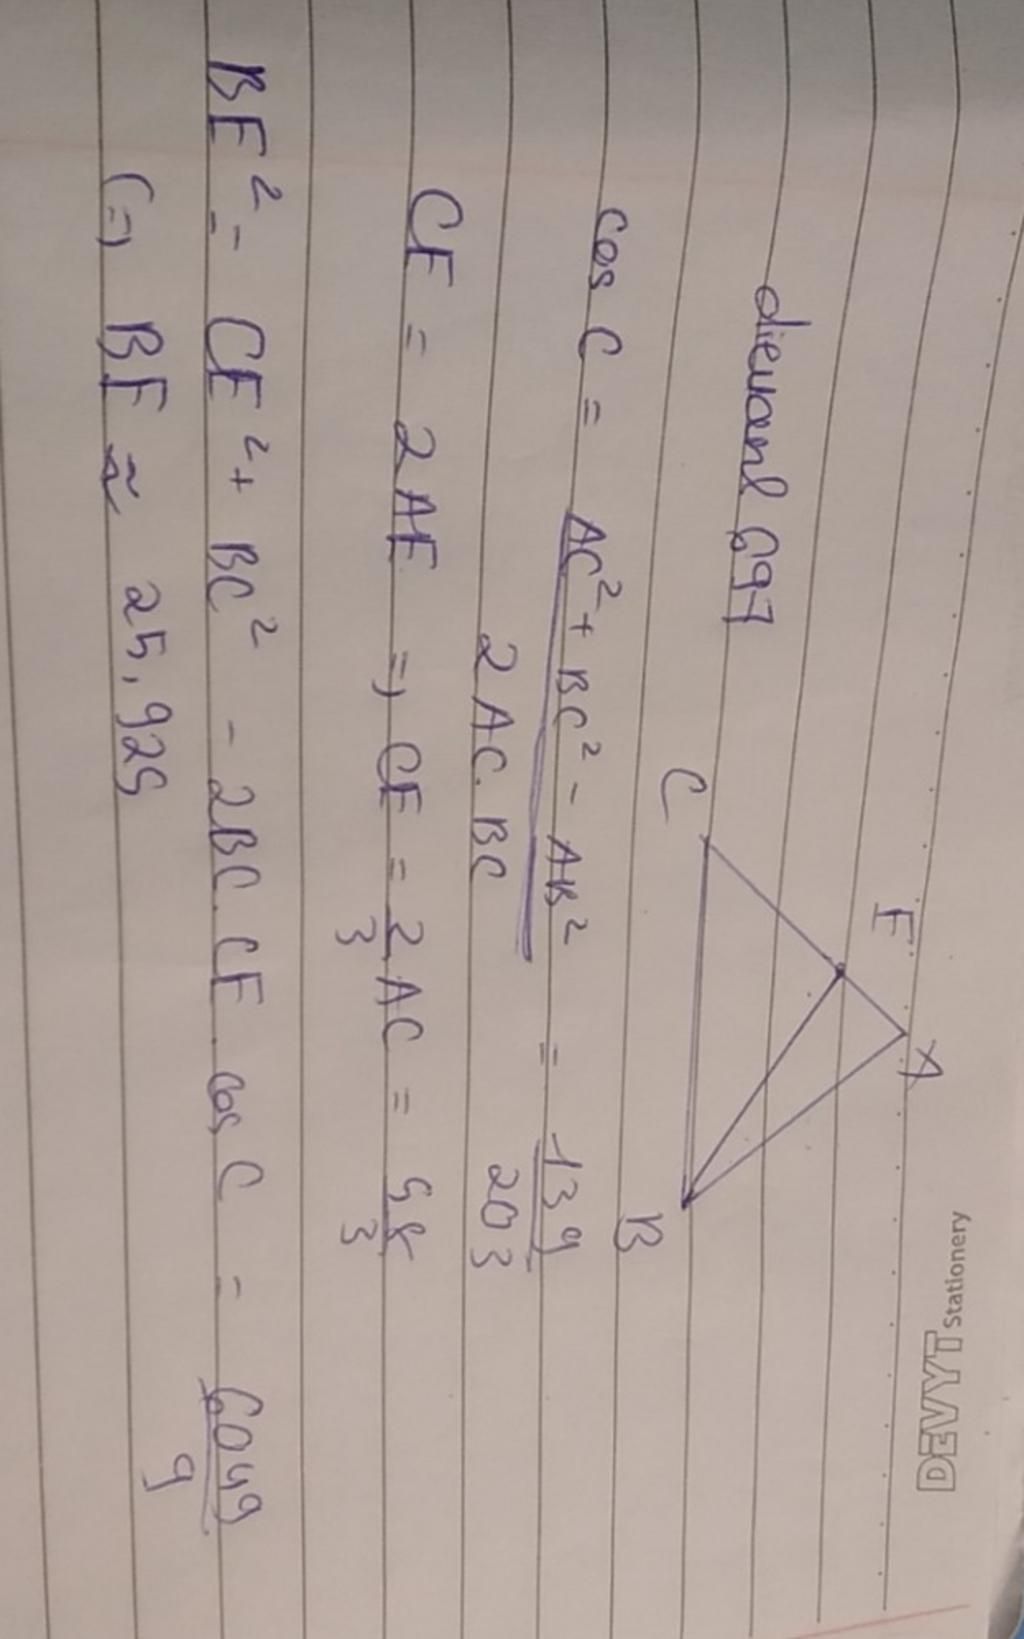 DEVYT Stationery
A
E
dieuanl 697
C
B
cos C = AC² + BC² - AB² / 2AC.BC = 139 / 203
CE = 2AE => CE = 2/3 AC = 58/3
BE² = CE² + BC² - 2BC.CE.cos C = 6049/9
(=) BE ≈ 25,925